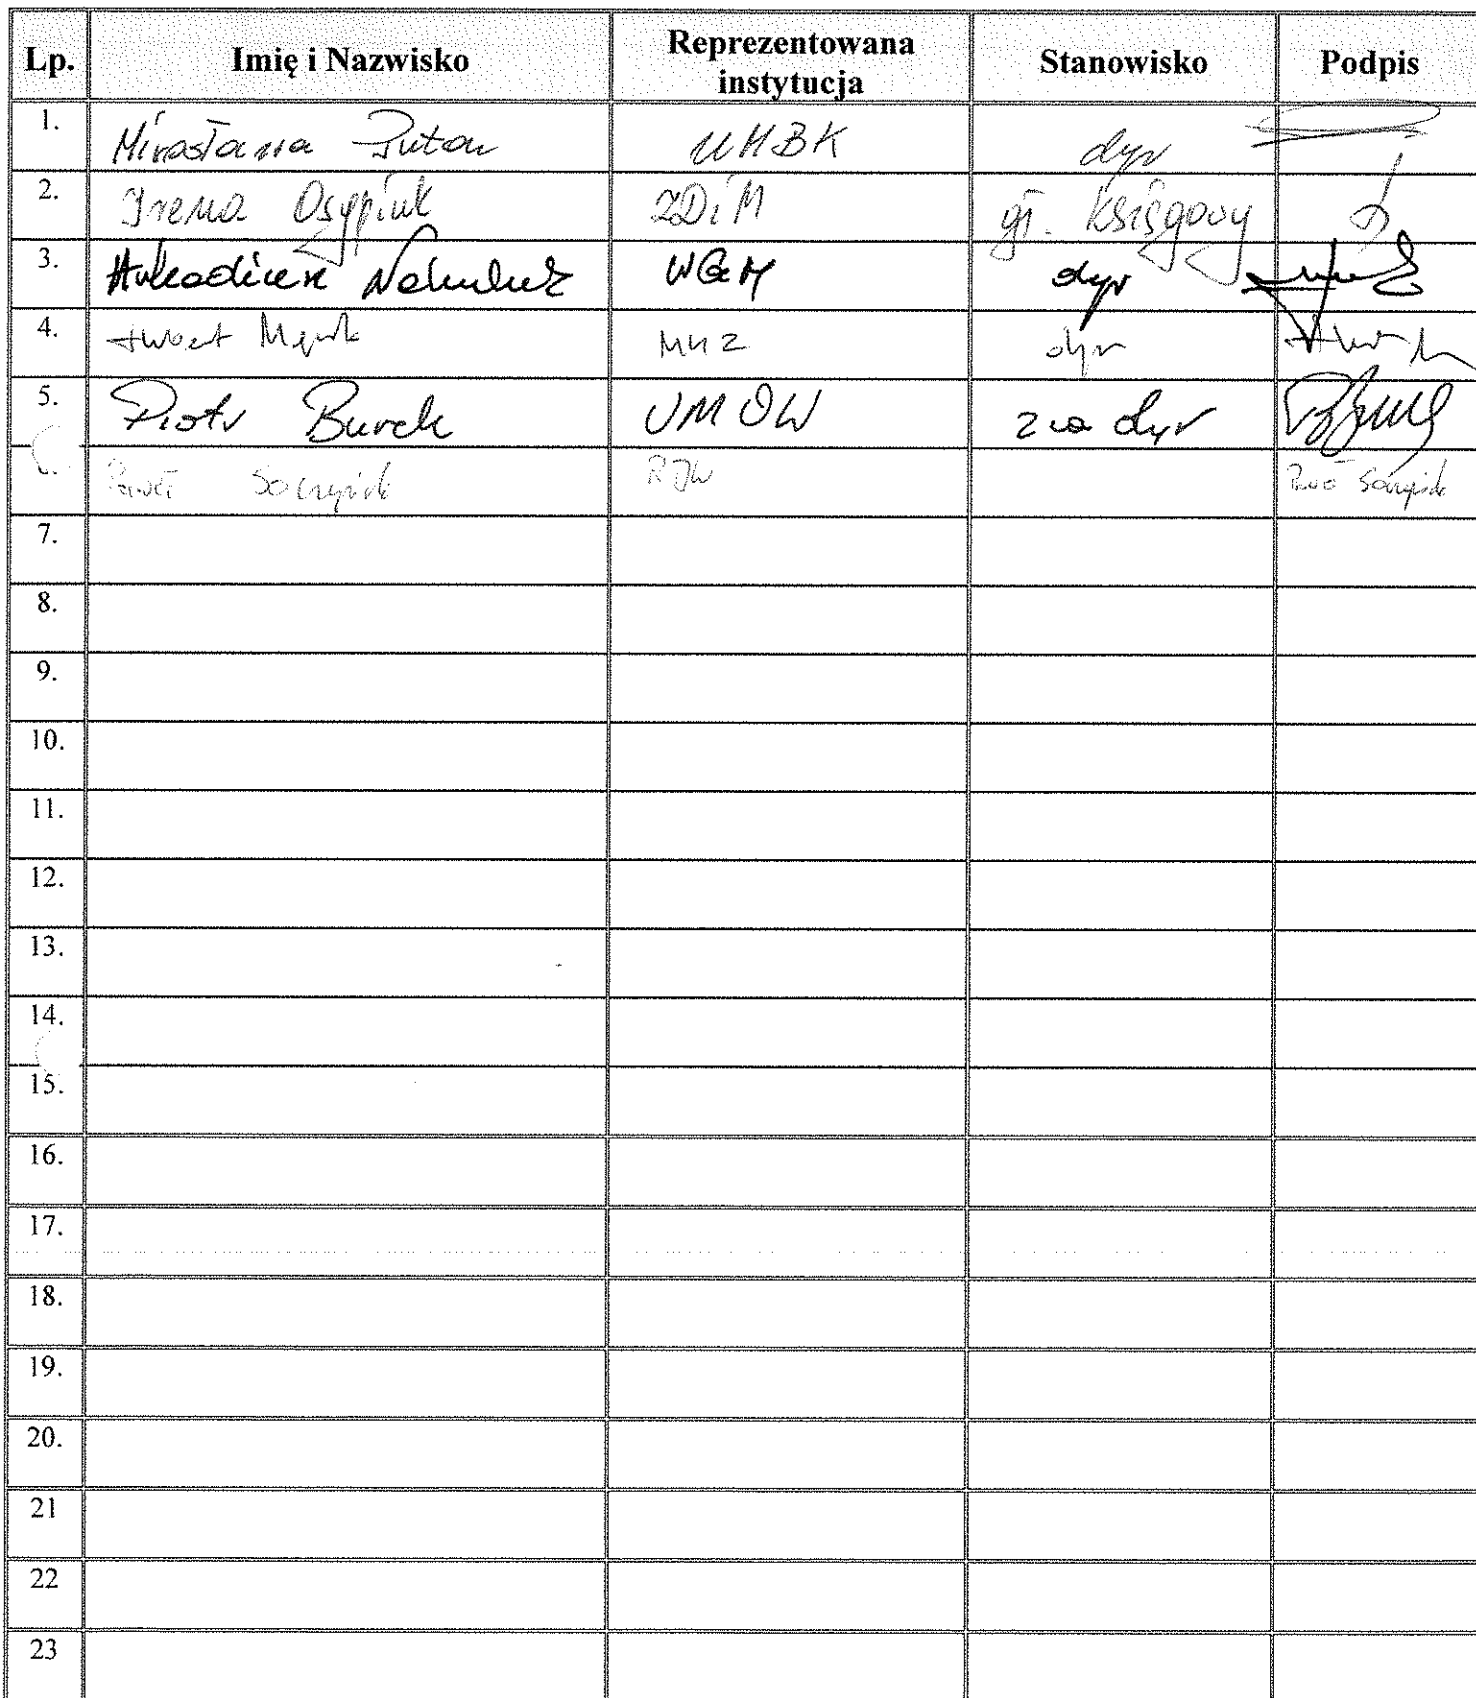 Lp. Imię i Nazwisko Reprezentowana instytucja Stanowisko Podpis
1. Mirosława Puton UMBK dyr
2. Irena Osypiuk ZDiM gł. księgowy
3. Arkadiusz Nahuluk WGM dyr
4. Hubert dyr
5. Piotr Burek UMOW z-ca dyr
Paweł RJW Paweł
7.
8.
9.
10.
11.
12.
13.
14.
15.
16.
17.
18.
19.
20.
21
22
23